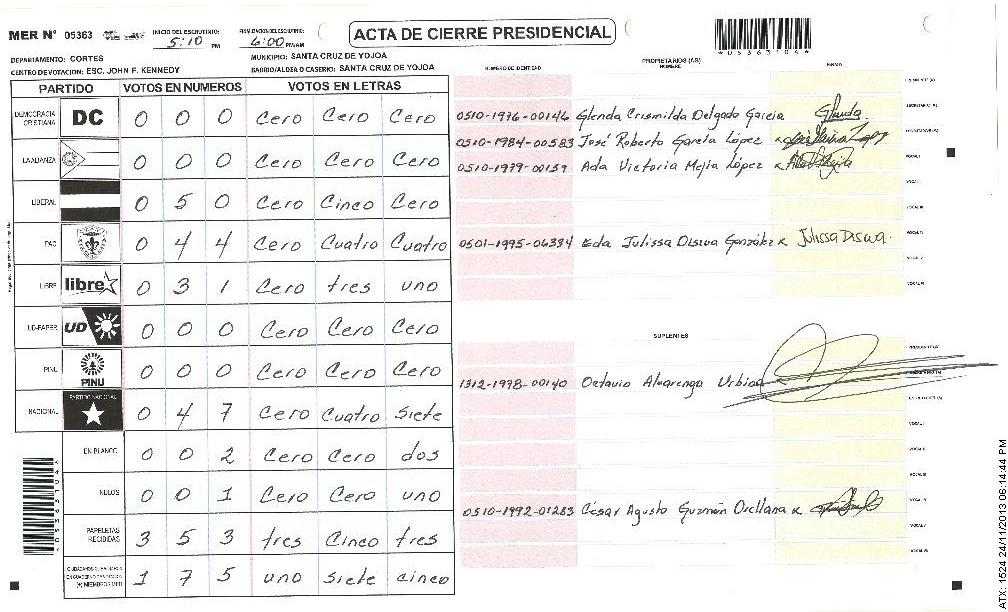 MER N° 05363
INICIO DEL ESCRUTINIO: 5:10 PM
FINALIZACION DEL ESCRUTINIO: 6:00 PM/AM
ACTA DE CIERRE PRESIDENCIAL
*053631044*
DEPARTAMENTO: CORTES
MUNICIPIO: SANTA CRUZ DE YOJOA
CENTRO DE VOTACION: ESC. JOHN F. KENNEDY
BARRIO/ALDEA O CASERIO: SANTA CRUZ DE YOJOA
PARTIDO VOTOS EN NUMEROS VOTOS EN LETRAS
DEMOCRACIA CRISTIANA DC 0 0 0 Cero Cero Cero
LA ALIANZA 0 0 0 Cero Cero Cero
LIBERAL 0 5 0 Cero Cinco Cero
PAC 0 4 4 Cero Cuatro Cuatro
LIBRE libre 0 3 1 Cero tres uno
UD-FAPER UD 0 0 0 Cero Cero Cero
PINU PINU 0 0 0 Cero Cero Cero
NACIONAL PARTIDO NACIONAL 0 4 7 Cero Cuatro Siete
EN BLANCO 0 0 2 Cero Cero dos
NULOS 0 0 1 Cero Cero uno
PAPELETAS RECIBIDAS 3 5 3 tres Cinco tres
1 7 5 uno Siete cinco
PROPIETARIOS (AS)
NUMERO DE IDENTIDAD NOMBRE FIRMA
0510-1976-00146 Glenda Crismilda Delgado Garcia Glenda
0510-1984-00583 José Roberto García López
0510-1979-00159 Ada Victoria Mejia López
0501-1995-06384 Eda Julissa Discua González Julissa Discua.
SUPLENTES
1312-1978-00140 Octavio Alvarenga Urbina
0510-1992-01283 César Agusto Guzmán Orellana
ATX: 1524 24/11/2013 06:14:44 PM